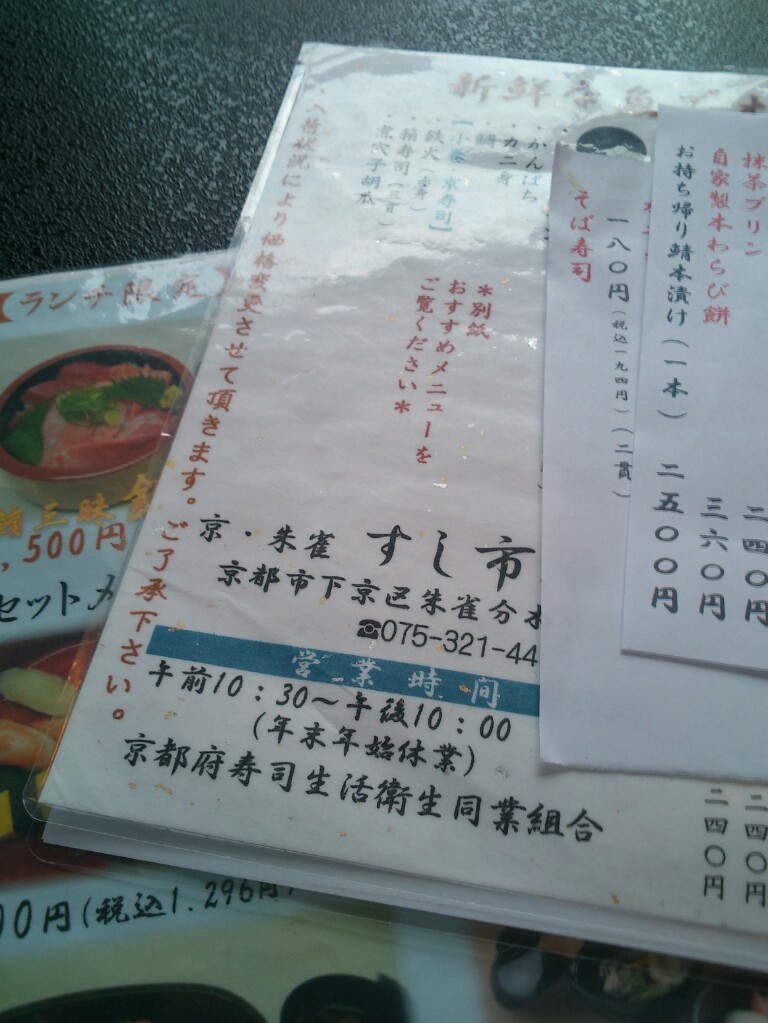 抹茶プリン
二四〇円
自家製本わらび餅
三六〇円
お持ち帰り鯖本漬け(一本)
二五〇〇円
一八〇円(税込一九四円)(二貫)
そば寿司
二四〇円
二四〇円
新鮮
かんぱち
カニ身
鯛
鉄火
箱寿司(二貫)
煮穴子胡瓜
*別紙
おすすめメニューを
ご覧ください*
入荷状況により価格変更させて頂きます。ご了承下さい。
京・朱雀 すし市
京都市下京区朱雀分木
☎075-321-44
営業時間
午前10:30～午後10:00
(年末年始休業)
京都府寿司生活衛生同業組合
【ランチ限定】
三昧
,500円
セットメ
00円(税込1.296円)